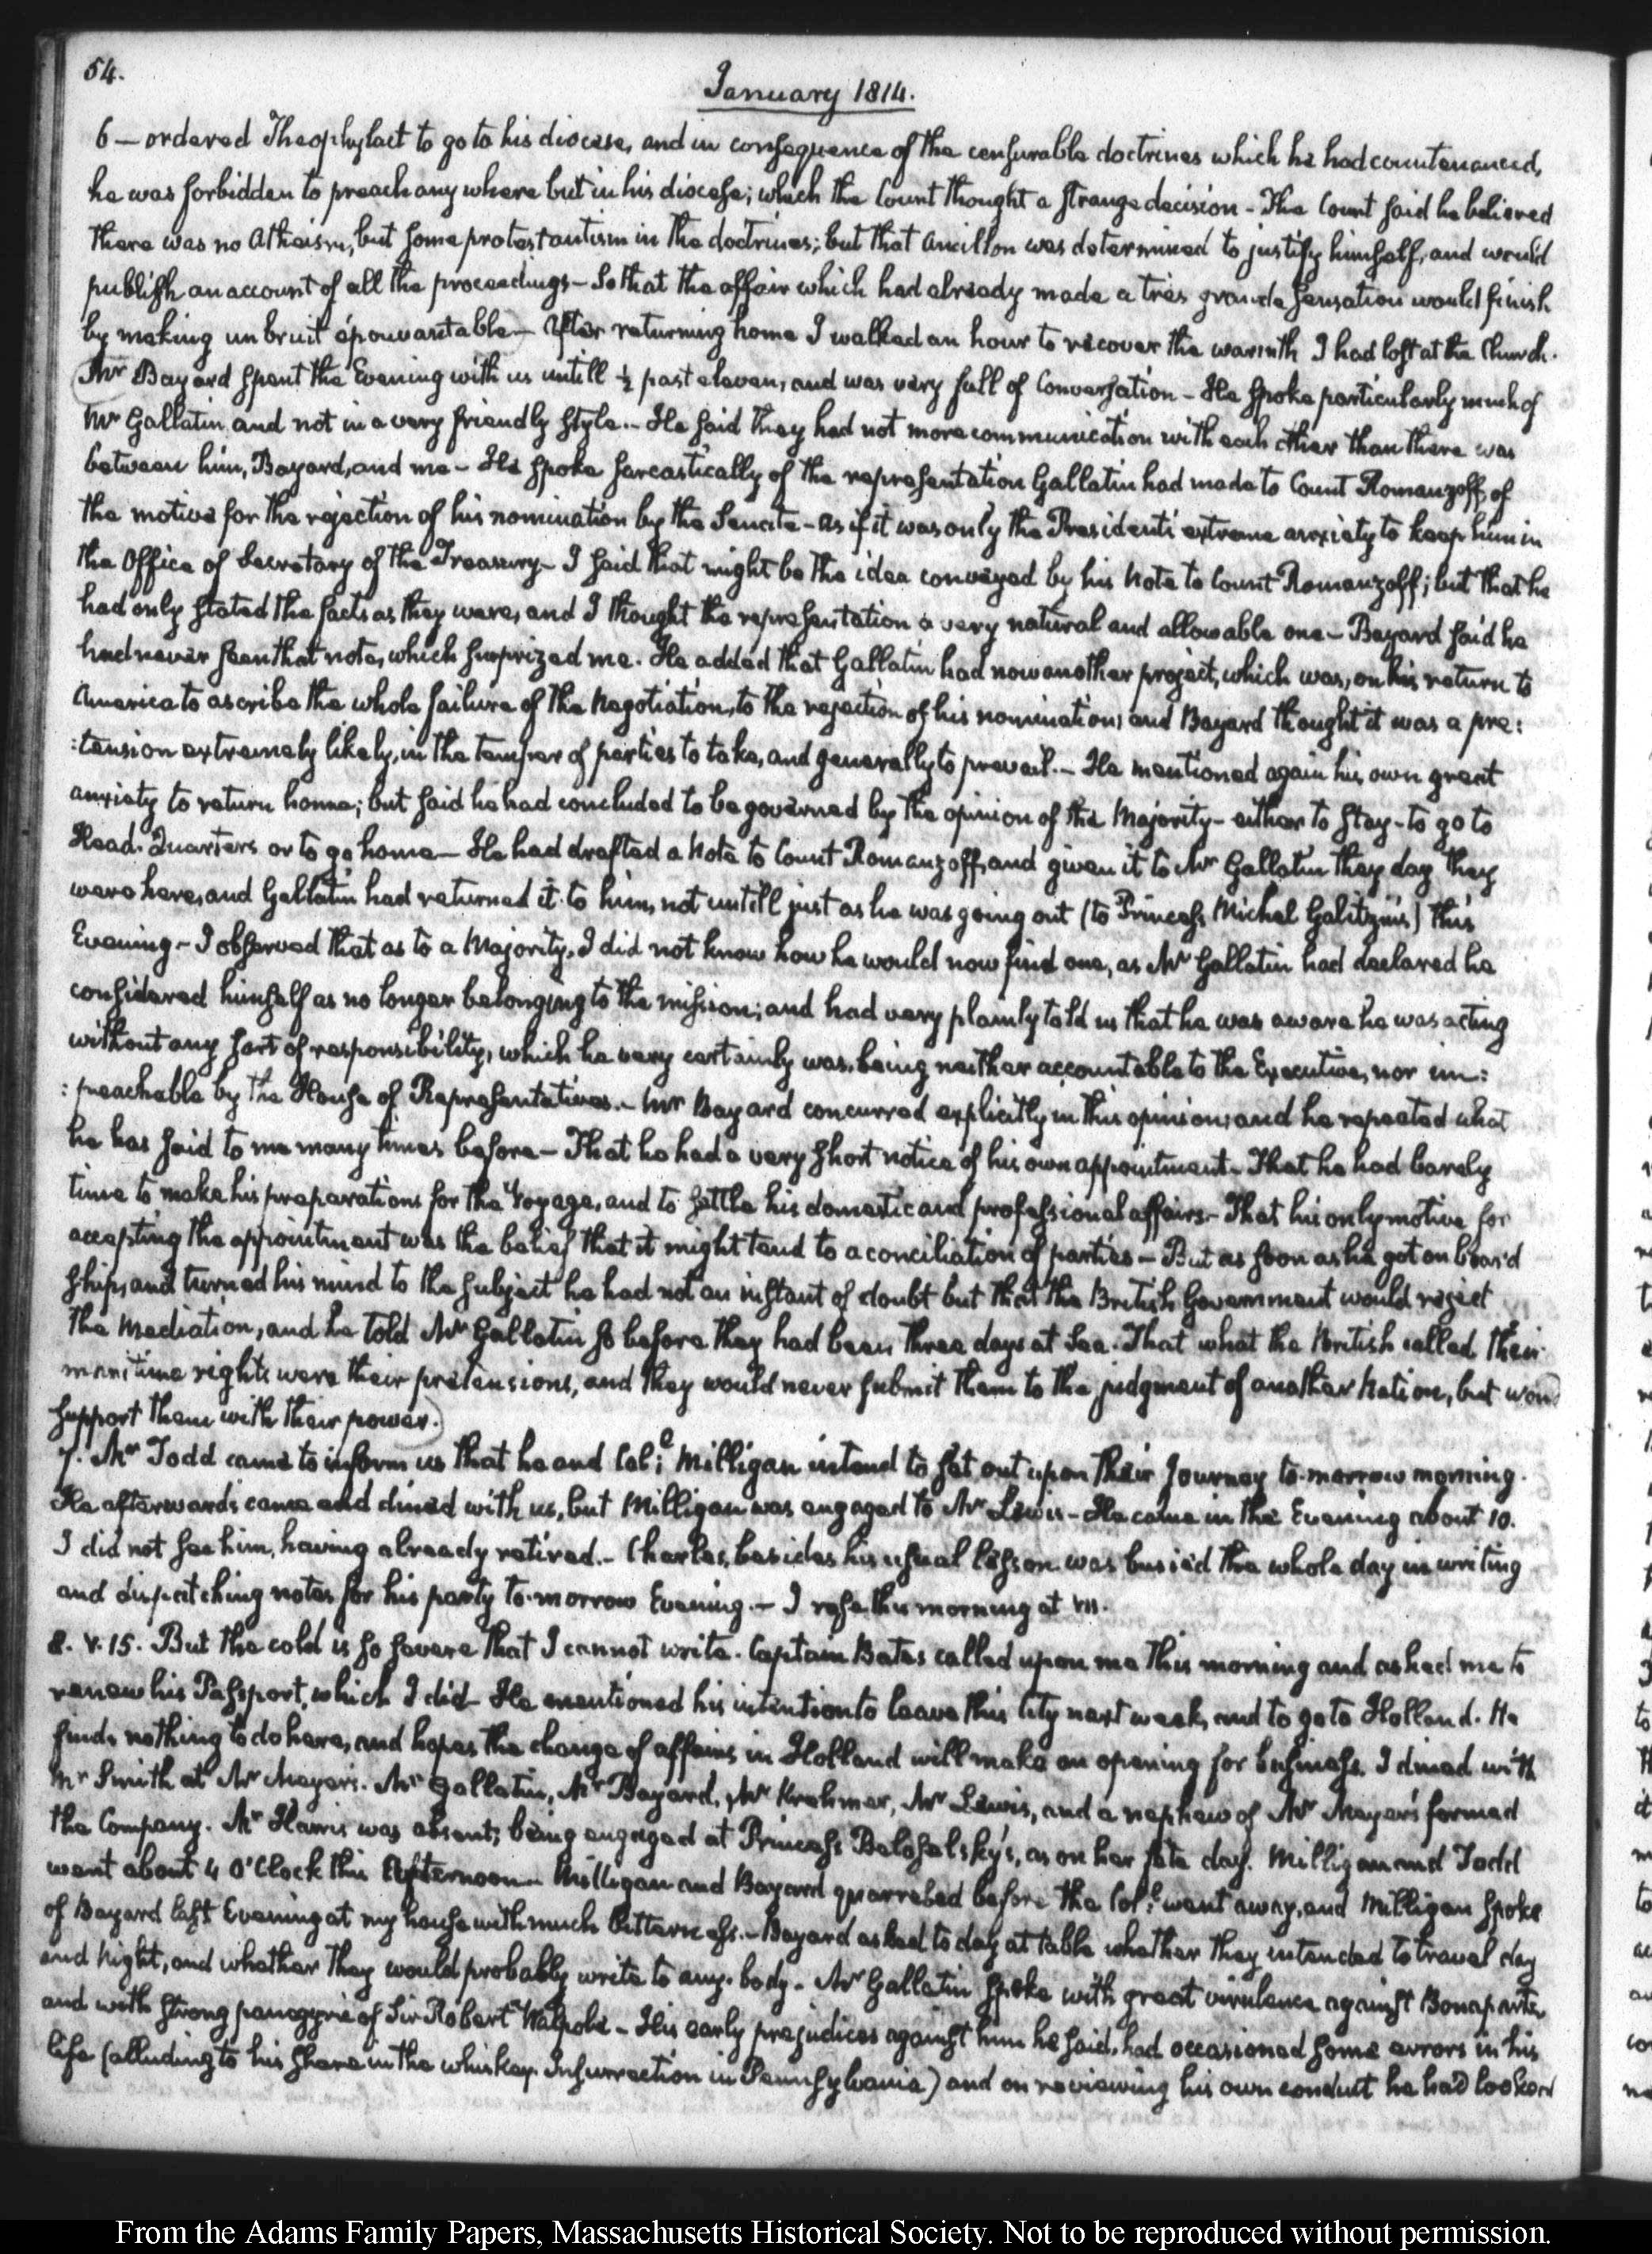 54.
January 1814.
6 — ordered Theophylact to go to his diocese, and in consequence of the censurable doctrines which he had countenanced,
he was forbidden to preach any where but in his diocese; which the Count thought a strange decision - The Count said he believed
there was no Atheism, but some protestantism in the doctrines; but that Ancillon was determined to justify himself, and would
publish an account of all the proceedings - So that the affair which had already made a très grande sensation would finish
by making un bruit épouvantable - After returning home I walked an hour to recover the warmth I had lost at the Church.
Mr Bayard spent the Evening with us untill ½ past eleven, and was very full of Conversation - He spoke particularly much of
Mr Gallatin, and not in a very friendly style.- He said they had not more communication with each other than there was
between him, Bayard, and me - He spoke sarcastically of the representation Gallatin had made to Count Romanzoff, of
the motive for the rejection of his nomination by the Senate - as if it was only the President's extreme anxiety to keep him in
the Office of Secretary of the Treasury - I said that might be the idea conveyed by his Note to Count Romanzoff; but that he
had only stated the facts as they were, and I thought the representation a very natural and allowable one - Bayard said he
had never seen that note, which surprized me. He added that Gallatin had now another project, which was, on his return to
America to ascribe the whole failure of the Negotiation, to the rejection of his nomination; and Bayard thought it was a pre:
:tension extremely likely, in the temper of parties to take, and generally to prevail.- He mentioned again his own great
anxiety to return home; but said he had concluded to be governed by the opinion of the Majority - either to stay - to go to
Head-Quarters or to go home - He had drafted a Note to Count Romanzoff, and given it to Mr Gallatin they day they
were here, and Gallatin had returned it to him, not untill just as he was going out (to Princess Michel Galitzin's) this
Evening - I observed that as to a Majority, I did not know how he would now find one, as Mr Gallatin had declared he
considered himself as no longer belonging to the mission; and had very plainly told us that he was aware he was acting
without any sort of responsibility, which he very certainly was, being neither accountable to the Executive, nor im:
:peachable by the House of Representatives.- Mr Bayard concurred explicitly in this opinion; and he repeated what
he has said to me many times before - That he had a very short notice of his own appointment - That he had barely
time to make his preparations for the Voyage, and to settle his domestic and professional affairs - That his only motive for
accepting the appointment was the belief that it might tend to a conciliation of parties - But as soon as he got on board
ship, and turned his mind to the subject he had not an instant of doubt but that the British Government would reject
the Mediation, and he told Mr Gallatin so before they had been three days at Sea. That what the British called their
maritime rights were their pretensions, and they would never submit them to the judgment of another Nation, but
support them with their power.
7. Mr Todd came to inform us that he and Coll: Milligan intend to set out upon their Journey to-morrow morning.
He afterwards came and dined with us, but Milligan was engaged to Mr Lewis - He came in the Evening about 10.
I did not see him, having already retired.- Charles, besides his usual lesson was busied the whole day in writing
and dispatching notes for his party to-morrow Evening.- I rose this morning at VII.
8. V.15. But the cold is so severe that I cannot write. Captain Bates called upon me this morning and asked me to
renew his Passport, which I did - He mentioned his intention to leave this City next week, and to go to Holland. He
finds nothing to do here, and hopes the change of affairs in Holland will make an opening for business. I dined with
Mr Smith at Mr Meyer's. Mr Gallatin, Mr Bayard, Mr Krehmer, Mr Lewis, and a nephew of Mr Meyer's formed
the Company. Mr Harris was absent; being engaged at Princess Beloselsky's, as on her fête day. Milligan and Todd
went about 4 O'Clock this Afternoon - Milligan and Bayard quarrelled before the Coll: went away, and Milligan spoke
of Bayard last Evening at my house with much bitterness.- Bayard asked to day at table whether they intended to travel day
and Night, and whether they would probably write to any-body - Mr Gallatin spoke with great virulence against Bonaparte,
and with strong panegyric of Sir Robert Walpole - His early prejudices against him he said, had occasioned some errors in his
life (alluding to his share in the whiskey Insurrection in Pennsylvania) and on reviewing his own conduct he had looked
From the Adams Family Papers, Massachusetts Historical Society. Not to be reproduced without permission.